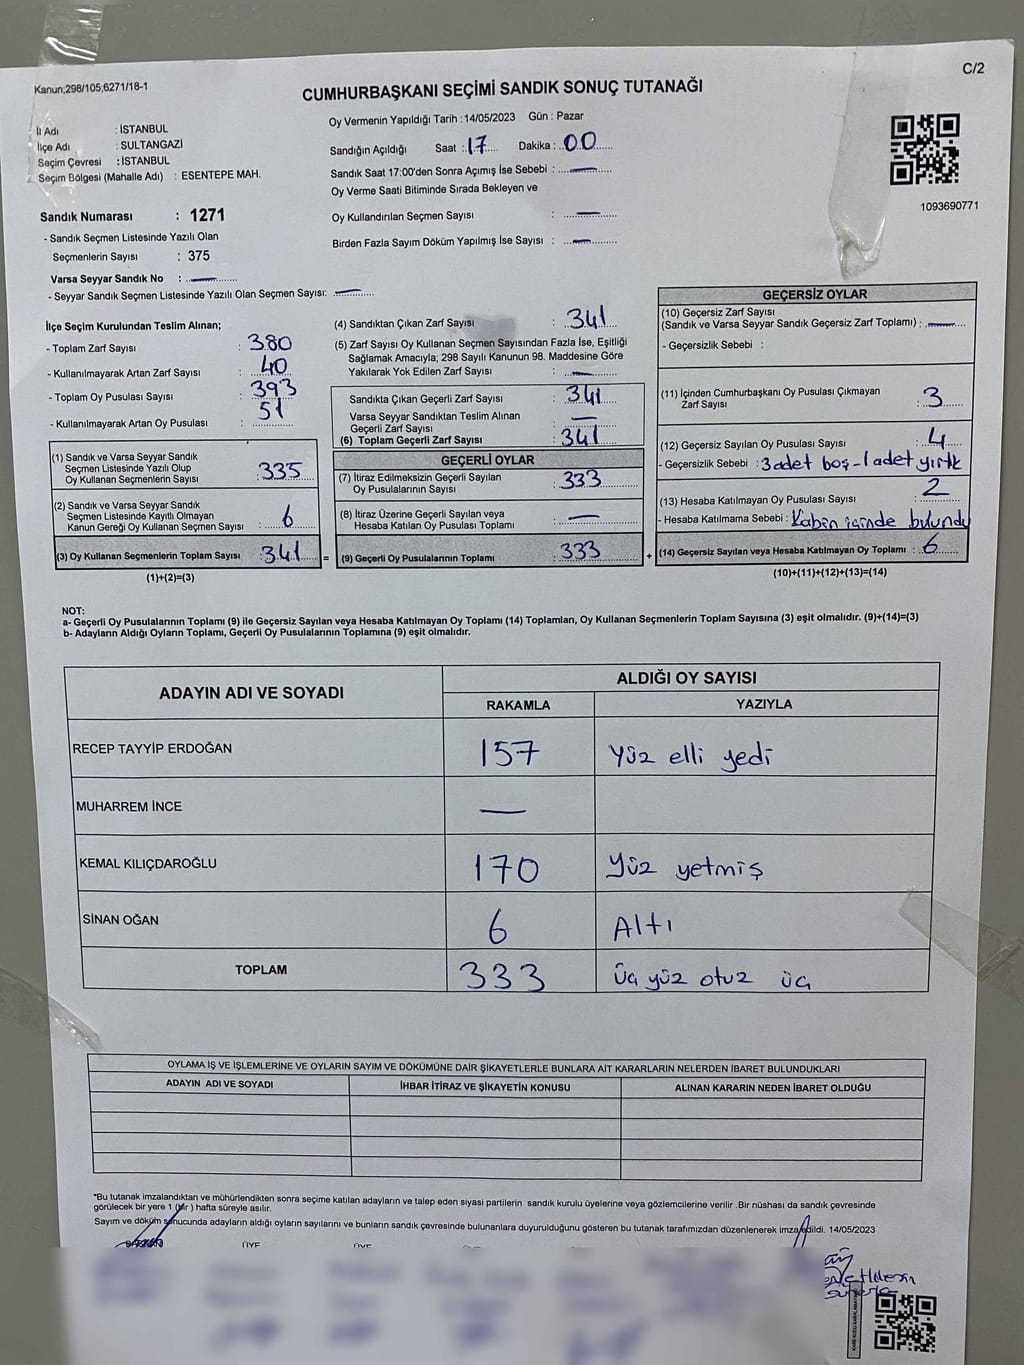 Kanun;298/105;6271/18-1
C/2
CUMHURBAŞKANI SEÇİMİ SANDIK SONUÇ TUTANAĞI
İl Adı : İSTANBUL
İlçe Adı : SULTANGAZİ
Seçim Çevresi : İSTANBUL
Seçim Bölgesi (Mahalle Adı) : ESENTEPE MAH.
Oy Vermenin Yapıldığı Tarih :14/05/2023 Gün : Pazar
Sandığın Açıldığı Saat : 17 Dakika : 00
Sandık Saat 17:00'den Sonra Açımış İse Sebebi : —
Oy Verme Saati Bitiminde Sırada Bekleyen ve
Oy Kullandırılan Seçmen Sayısı : —
Birden Fazla Sayım Döküm Yapılmış İse Sayısı : —
1093690771
Sandık Numarası : 1271
- Sandık Seçmen Listesinde Yazılı Olan
Seçmenlerin Sayısı : 375
Varsa Seyyar Sandık No : —
- Seyyar Sandık Seçmen Listesinde Yazılı Olan Seçmen Sayısı: —
İlçe Seçim Kurulundan Teslim Alınan;
- Toplam Zarf Sayısı : 380
- Kullanılmayarak Artan Zarf Sayısı : 40
- Toplam Oy Pusulası Sayısı : 393
- Kullanılmayarak Artan Oy Pusulası : 51
(1) Sandık ve Varsa Seyyar Sandık
Seçmen Listesinde Yazılı Olup
Oy Kullanan Seçmenlerin Sayısı : 335
(2) Sandık ve Varsa Seyyar Sandık
Seçmen Listesinde Kayıtlı Olmayan
Kanun Gereği Oy Kullanan Seçmen Sayısı : 6
(3) Oy Kullanan Seçmenlerin Toplam Sayısı : 341 =
(1)+(2)=(3)
(4) Sandıktan Çıkan Zarf Sayısı : 341
(5) Zarf Sayısı Oy Kullanan Seçmen Sayısından Fazla İse, Eşitliği
Sağlamak Amacıyla; 298 Sayılı Kanunun 98. Maddesine Göre
Yakılarak Yok Edilen Zarf Sayısı : —
Sandıkta Çıkan Geçerli Zarf Sayısı : 341
Varsa Seyyar Sandıktan Teslim Alınan
Geçerli Zarf Sayısı : —
(6) Toplam Geçerli Zarf Sayısı : 341
GEÇERLİ OYLAR
(7) İtiraz Edilmeksizin Geçerli Sayılan
Oy Pusulalarının Sayısı : 333
(8) İtiraz Üzerine Geçerli Sayılan veya
Hesaba Katılan Oy Pusulası Toplamı : —
(9) Geçerli Oy Pusulalarının Toplamı : 333 +
GEÇERSİZ OYLAR
(10) Geçersiz Zarf Sayısı
(Sandık ve Varsa Seyyar Sandık Geçersiz Zarf Toplamı) : —
- Geçersizlik Sebebi :
(11) İçinden Cumhurbaşkanı Oy Pusulası Çıkmayan
Zarf Sayısı : 3
(12) Geçersiz Sayılan Oy Pusulası Sayısı : 4
- Geçersizlik Sebebi : 3 adet boş-1 adet yırtık
(13) Hesaba Katılmayan Oy Pusulası Sayısı : 2
- Hesaba Katılmama Sebebi : Kabin içinde bulundu
(14) Geçersiz Sayılan veya Hesaba Katılmayan Oy Toplamı : 6
(10)+(11)+(12)+(13)=(14)
NOT:
a- Geçerli Oy Pusulalarının Toplamı (9) ile Geçersiz Sayılan veya Hesaba Katılmayan Oy Toplamı (14) Toplamları, Oy Kullanan Seçmenlerin Toplam Sayısına (3) eşit olmalıdır. (9)+(14)=(3)
b- Adayların Aldığı Oyların Toplamı, Geçerli Oy Pusulalarının Toplamına (9) eşit olmalıdır.
ADAYIN ADI VE SOYADI
ALDIĞI OY SAYISI
RAKAMLA YAZIYLA
RECEP TAYYİP ERDOĞAN 157 Yüz elli yedi
MUHARREM İNCE —
KEMAL KILIÇDAROĞLU 170 Yüz yetmiş
SİNAN OĞAN 6 Altı
TOPLAM 333 Üç yüz otuz üç
OYLAMA İŞ VE İŞLEMLERİNE VE OYLARIN SAYIM VE DÖKÜMÜNE DAİR ŞİKAYETLERLE BUNLARA AİT KARARLARIN NELERDEN İBARET BULUNDUKLARI
ADAYIN ADI VE SOYADI İHBAR İTİRAZ VE ŞİKAYETİN KONUSU ALINAN KARARIN NEDEN İBARET OLDUĞU
*Bu tutanak imzalandıktan ve mühürlendikten sonra seçime katılan adayların ve talep eden siyasi partilerin sandık kurulu üyelerine veya gözlemcilerine verilir .Bir nüshası da sandık çevresinde
görülecek bir yere 1 (bir ) hafta süreyle asılır.
Sayım ve döküm sonucunda adayların aldığı oyların sayılarını ve bunların sandık çevresinde bulunanlara duyurulduğunu gösteren bu tutanak tarafımızdan düzenlenerek imza edildi. 14/05/2023
ÜYE ÜYE